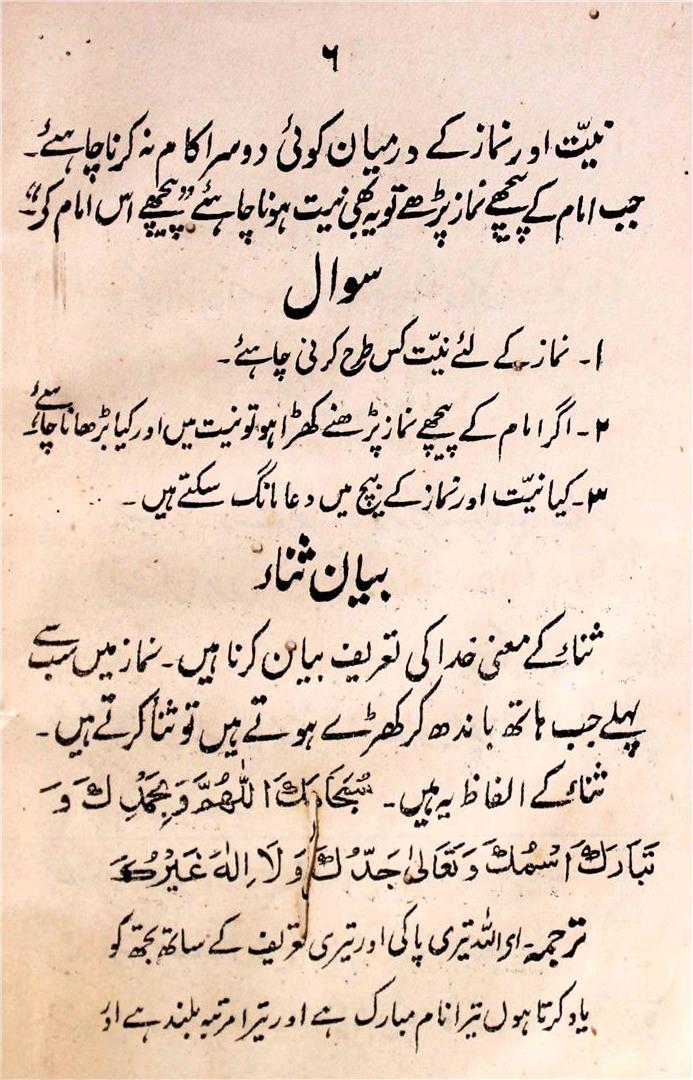 ۶
نیّت اور نماز کے درمیان کوئی دوسرا کام نہ کرنا چاہئے۔
جب امام کے پیچھے نماز پڑھے تو یہ بھی نیت ہونا چاہئے ”پیچھے اس امام کے“۔
سوال
۱۔ نماز کے لئے نیّت کس طرح کرنی چاہئے۔
۲۔ اگر امام کے پیچھے نماز پڑھنے کھڑا ہو تو نیت میں اور کیا بڑھانا چاہئے
۳۔ کیا نیّت اور نماز کے بیچ میں دعا مانگ سکتے ہیں۔
بیان ثناء
ثناء کے معنی خدا کی تعریف بیان کرنا ہیں۔ نماز میں سب سے
پہلے جب ہاتھ باندھ کر کھڑے ہوتے ہیں تو ثنا کرتے ہیں۔
ثناء کے الفاظ یہ ہیں۔ سُبْحَانَكَ اللّٰهُمَّ وَبِحَمْدِكَ وَ
تَبَارَكَ اسْمُكَ وَتَعَالٰی جَدُّكَ وَلَا اِلٰهَ غَيْرُكَ
ترجمہ۔ اے اللہ تیری پاکی اور تیری تعریف کے ساتھ تجھ کو
یاد کرتا ہوں تیرا نام مبارک ہے اور تیرا مرتبہ بلند ہے اور